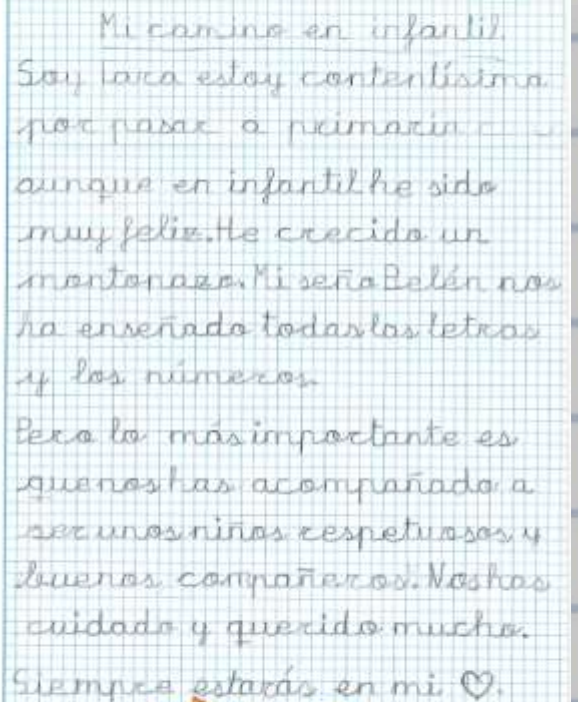 Mi camino en infantil.
Soy Lara estoy contentísima
por pasar a primaria
aunque en infantil he sido
muy feliz. He crecido un
montonazo. Mi seño Belén nos
ha enseñado todas las letras
y los números
Pero lo más importante es
que nos has acompañado a
ser unos niños respetuosos y
buenos compañeros. Nos has
cuidado y querido mucho.
Siempre estarás en mi ♡.